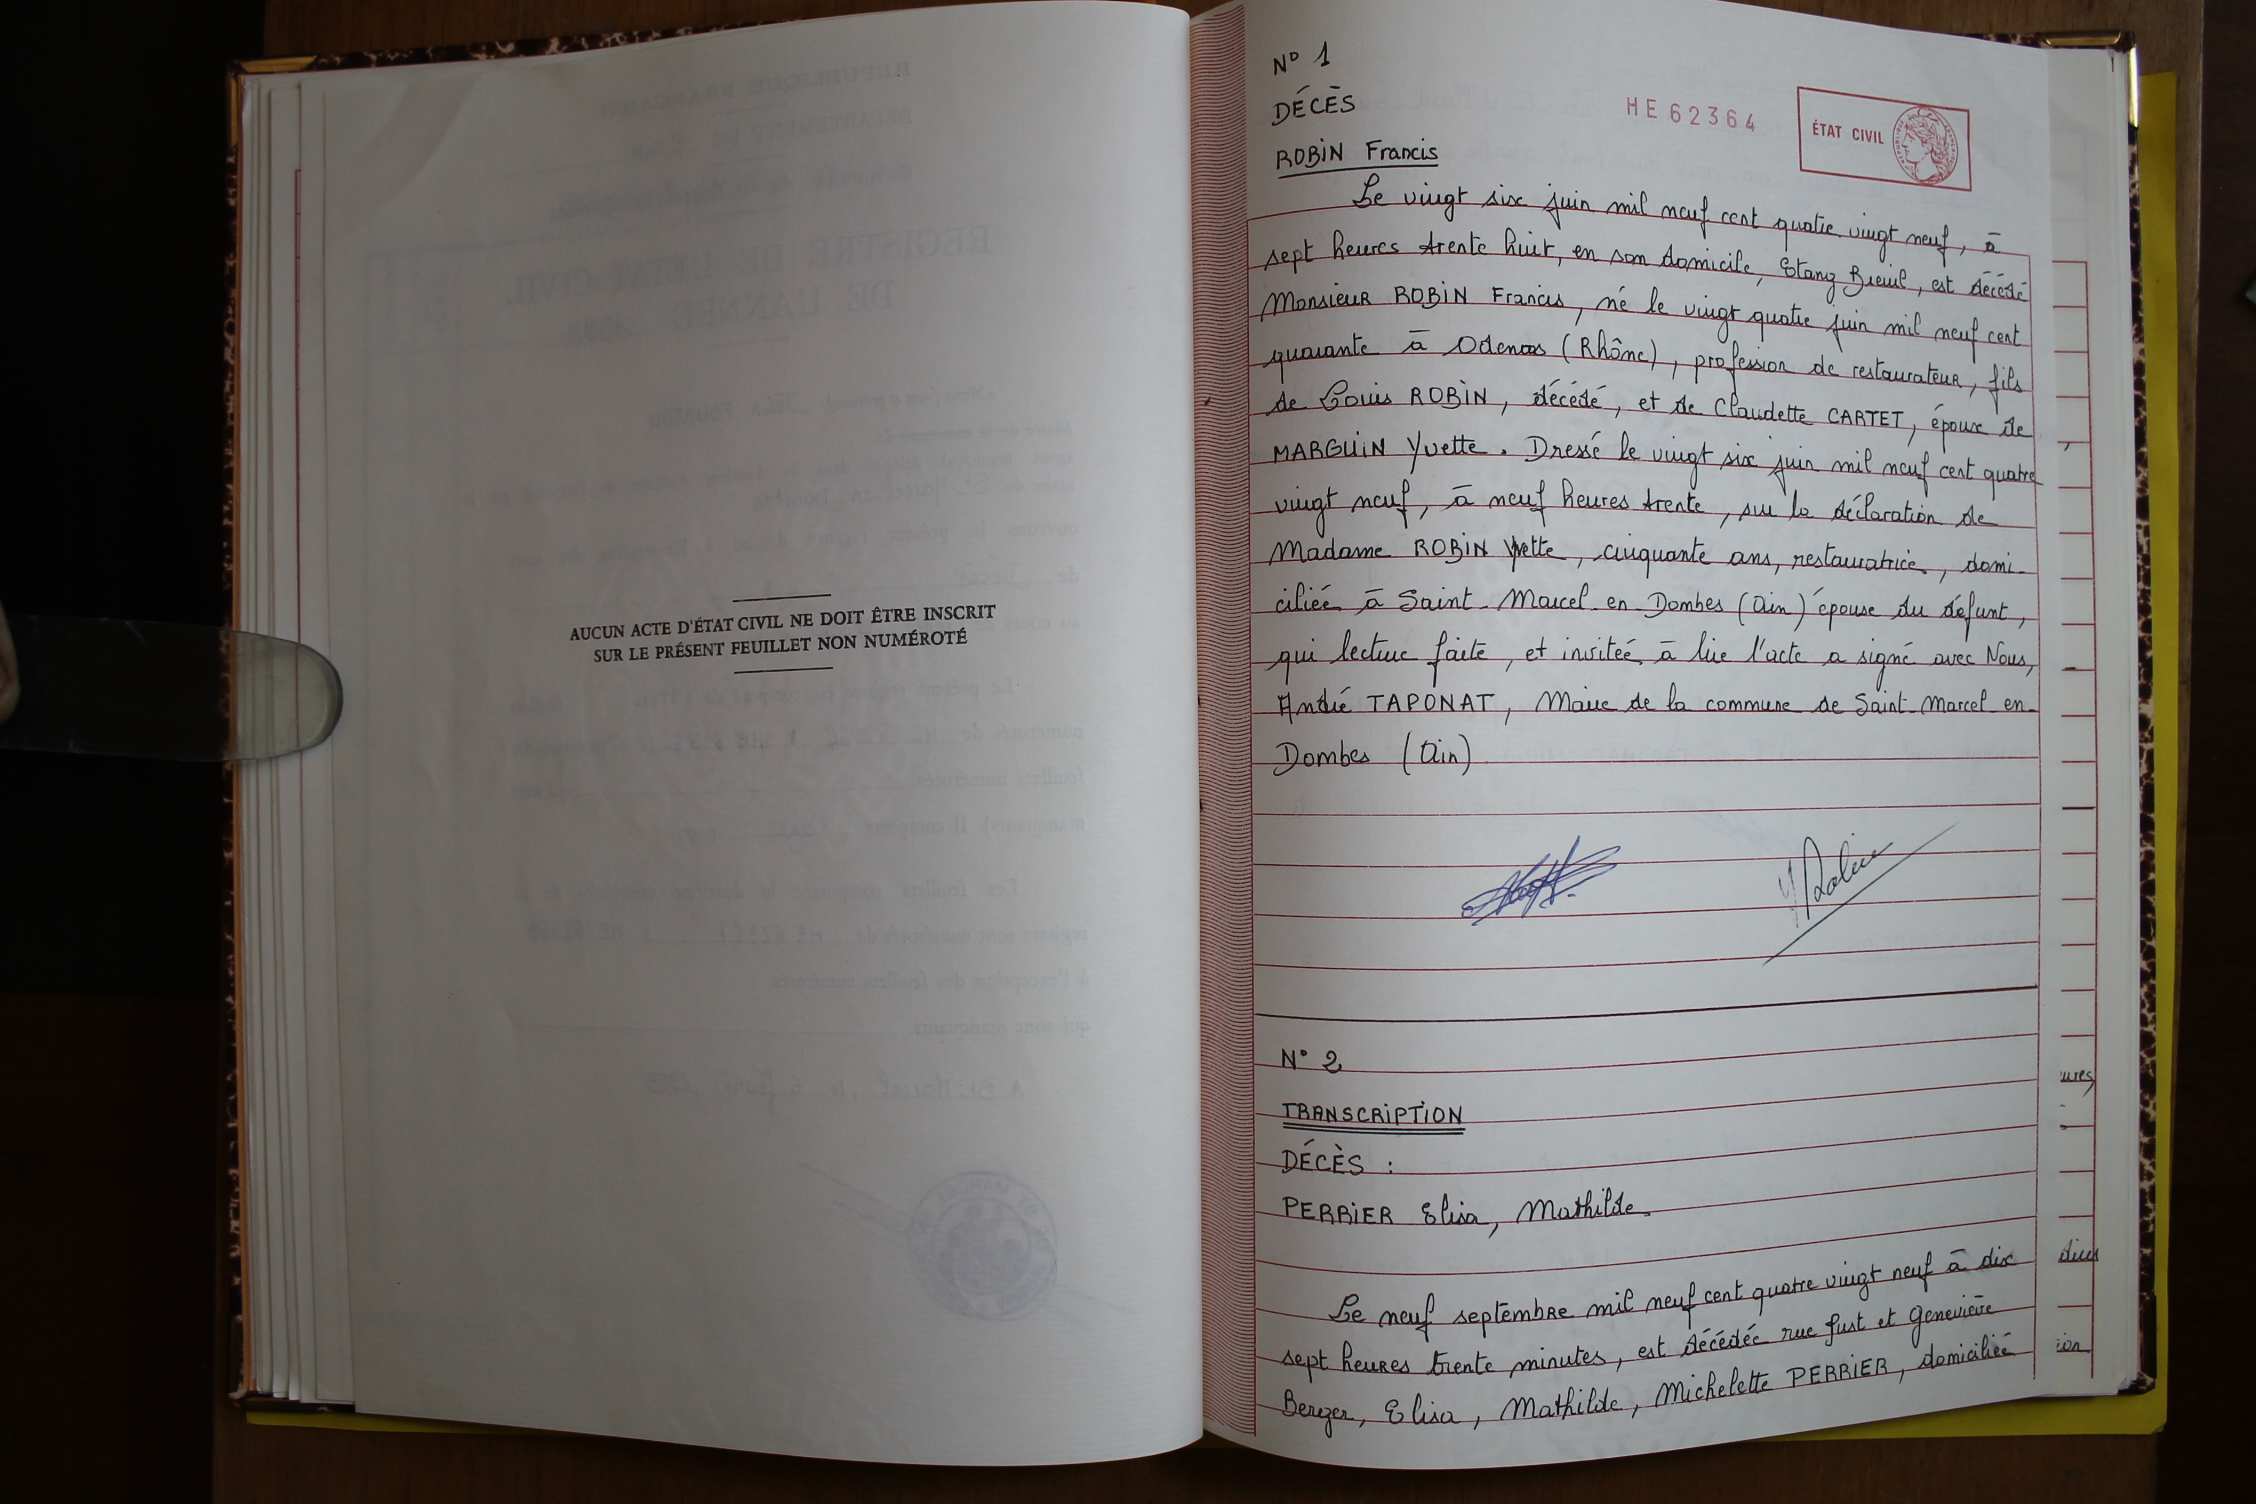 AUCUN ACTE D'ÉTAT CIVIL NE DOIT ÊTRE INSCRIT
SUR LE PRÉSENT FEUILLET NON NUMÉROTÉ
N° 1
DÉCÈS
HE 62364
ÉTAT CIVIL
ROBIN Francis
Le vingt six juin mil neuf cent quatre vingt neuf, à
sept heures trente huit, en son domicile, Etang Breuil, est décédé
Monsieur ROBIN Francis, né le vingt quatre juin mil neuf cent
quarante à Odenas (Rhône), profession de restaurateur, fils
de Louis ROBIN, décédé, et de Claudette CARTET, époux de
MARGUIN Yvette. Dressé le vingt six juin mil neuf cent quatre
vingt neuf, à neuf heures trente, sur la déclaration de
Madame ROBIN Yvette, cinquante ans, restauratrice, domi-
ciliée à Saint-Marcel-en-Dombes (Ain) épouse du défunt,
qui lecture faite, et invitée à lire l'acte a signé avec Nous,
André TAPONAT, Maire de la commune de Saint-Marcel-en-
Dombes (Ain)
Y Robin
N° 2
TRANSCRIPTION
DÉCÈS :
PERRIER Elisa, Mathilde.
Le neuf septembre mil neuf cent quatre vingt neuf à dix
sept heures trente minutes, est décédée rue Just et Geneviève
Berezer, Elisa, Mathilde, Michelette PERRIER, domiciliée